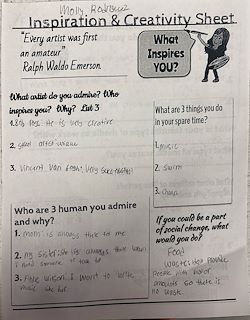 Molly
Inspiration & Creativity Sheet
"Every artist was first
an amateur"
Ralph Waldo Emerson.
What
Inspires
YOU?
What artist do you admire? Who
inspires you? Why? List 3
1. He is very creative
2.
3. Vincent Van Gogh: Very
What are 3 things you do
in your spare time?
1. music
2. swim
3.
Who are 3 human you admire
and why?
1. mom: is always there for me
2. my sister: she is always there when
I need someone to talk to
3. Wilson: I want to write
music like her
If you could be a part
of social change, what
would you do?
Food
waste: provide
people with
so there is
no waste.